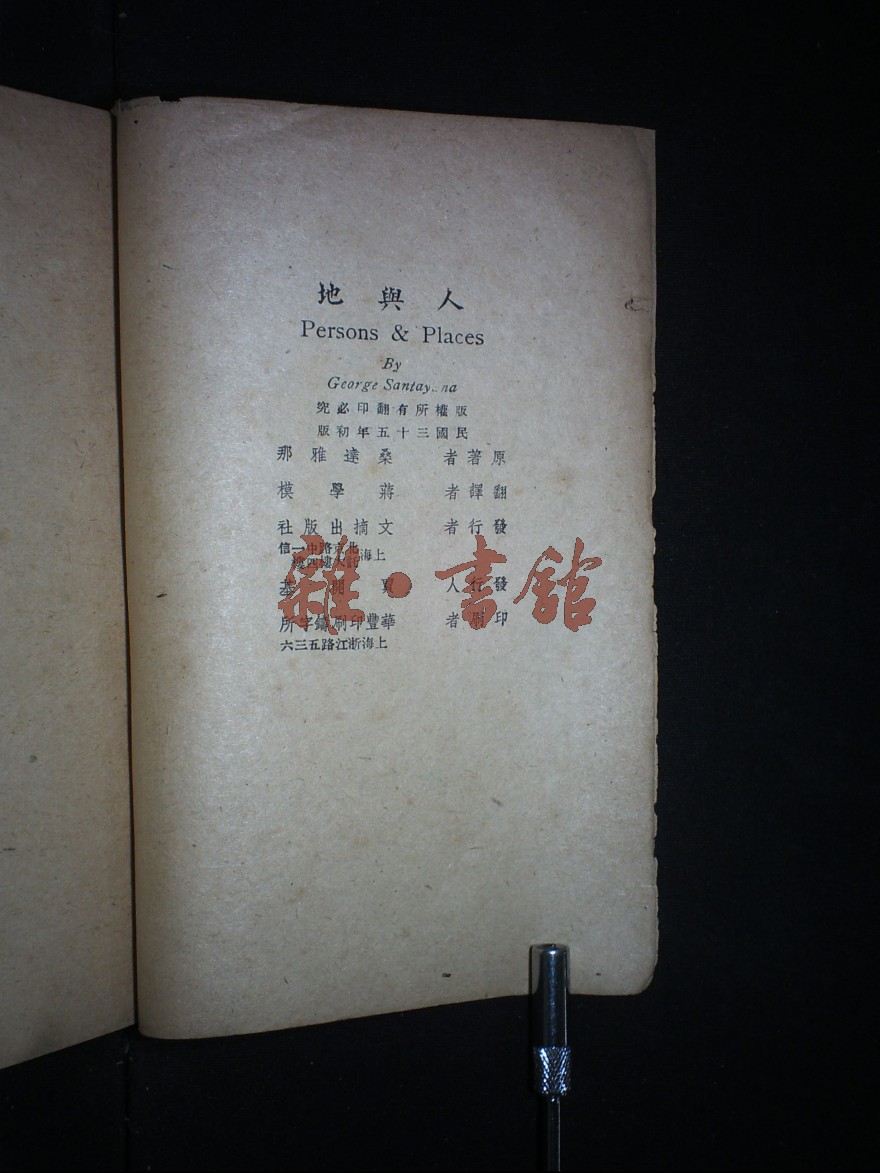 人與地
Persons & Places
By
George Santayana
版權所有翻印必究
民國三十五年初版
原著者 桑達雅那
翻譯者 蔣學模
發行者 文摘出版社
上海北京路中一信
託大樓四樓
發行人 賈開基
印刷者 華豐印刷鑄字所
上海浙江路五三六
雜·書館